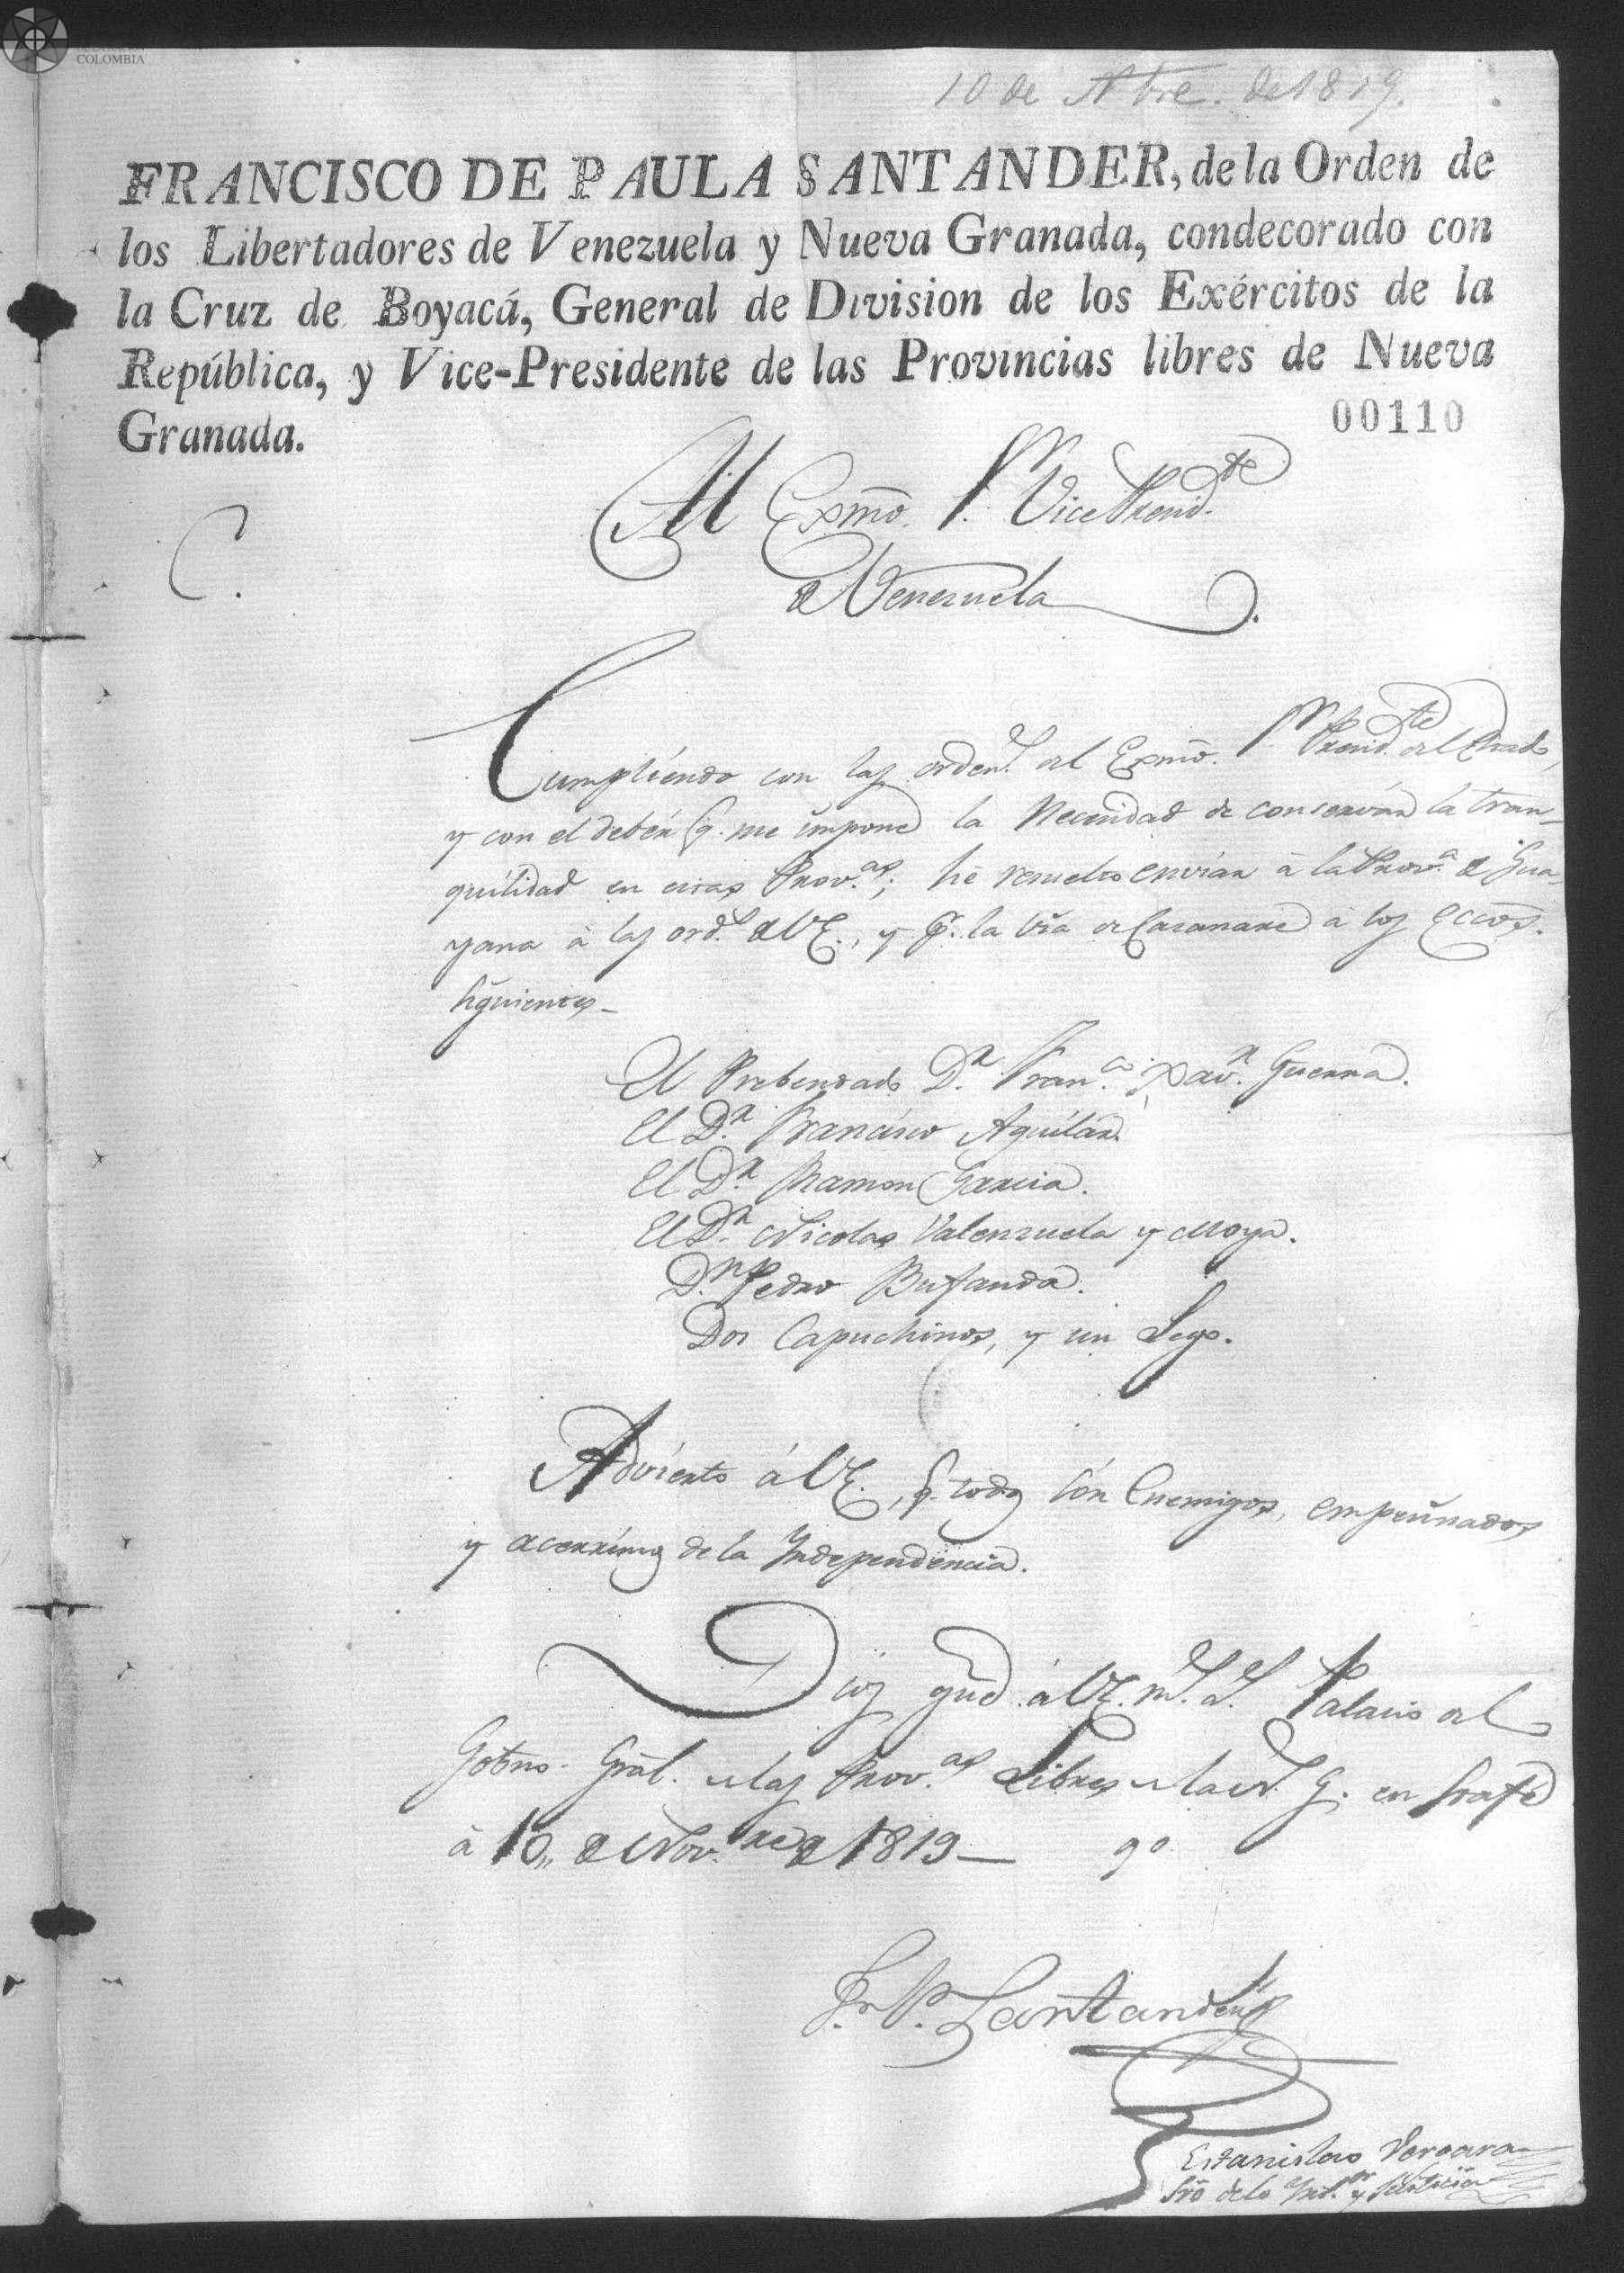 COLOMBIA
10 de Nbre. de 1819.
FRANCISCO DE PAULA SANTANDER, de la Orden de
los Libertadores de Venezuela y Nueva Granada, condecorado con
la Cruz de Boyacá, General de Division de los Exércitos de la
República, y Vice-Presidente de las Provincias libres de Nueva
Granada.
00110
Al Exmõ. Sr. Vice Presid.te
de Venezuela.
C.
Cumpliendo con las orden.s del Exmõ. Sr. Presid.te del Estado,
y con el debér q. me impone la Necesidad de conservár la tran-
quilidad en estas Prov.as; hé resuelto enviár à la Prov.a de Gua-
yana à las ord.s de VE., y pr. la via de Casanare à los Eccõs.
siguientes-
El Prebendado D.r Fran.co Xav.r Guerra.
El D.r Francisco Aguilár.
El D.r Ramon Garcia.
El D.r Nicolas Valenzuela y Moya.
D.n Pedro Bujanda.
Dos Capuchinos, y un Lego.
Advierto á VE., q. todos són Enemigos, empeñnados
y acerrimos de la Independencia.
Dios gũe á VE. m.s a.s Palacio del
Gobno. Grãl. de las Prov.as Libres de la N. G. en Santafé
à 10,, de Nov.re de 1819— 9º
F. P. Santander
Estanislao Vergara
Srio de lo Int.or y Justicia